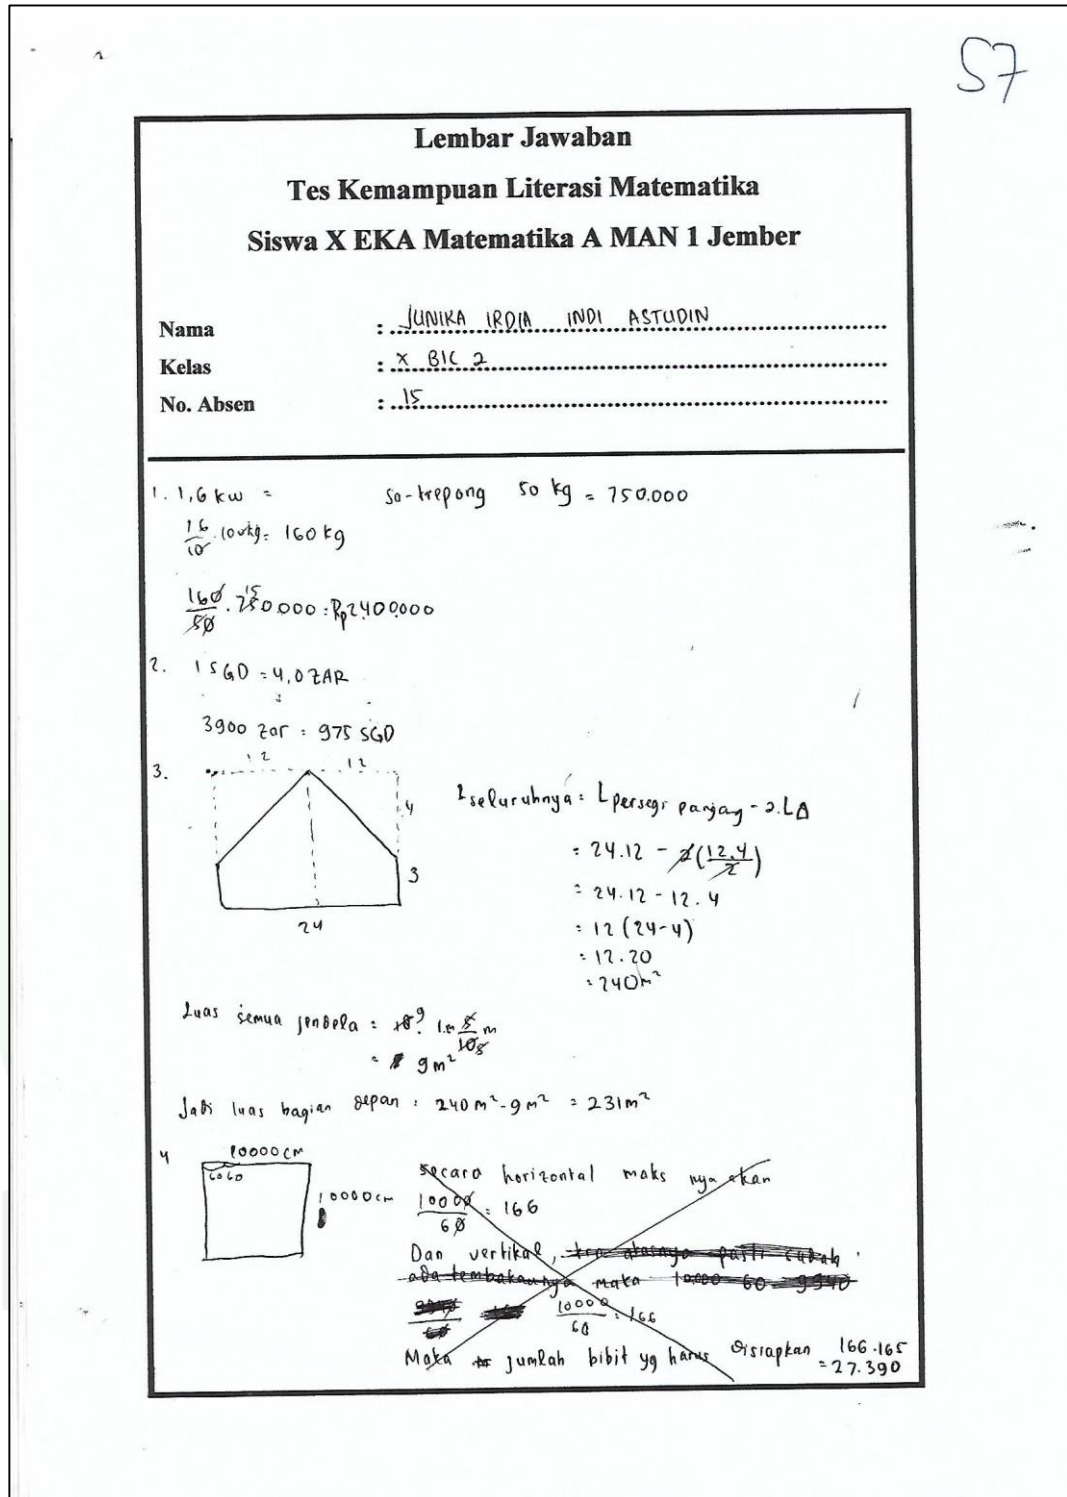 57
Lembar Jawaban
Tes Kemampuan Literasi Matematika
Siswa X EKA Matematika A MAN 1 Jember
Nama : JUNIKA IRDIA INDI ASTUDIN
Kelas : X BIC 2
No. Absen : 15
1. 1,6 kw = So-trepong 50 kg = 750.000
16/10 . 100kg = 160 kg
160/50 . 750.000 = Rp2.400.000
15
2. 1 SGD = 4,0 ZAR
3900 zar = 975 SGD
3. 12 12
4
3
24
L seluruhnya = L persegi panjang - 2.L∆
= 24.12 - 2(12.4/2)
= 24.12 - 12.4
= 12 (24-4)
= 12.20
= 240m²
Luas semua jendela = 18 9 . 1m 5/10 m
= 9m²
Jadi luas bagian depan : 240 m² - 9 m² = 231m²
4 10000 cm
60 60
10000 cm
secara horizontal maks nya akan
10000/60 = 166
Dan vertikal, pasti sudah
ada tembakaunya maka 10000 - 60 = 9940
10000/60 = 166
Maka jumlah bibit yg harus disiapkan 166.165
= 27.390